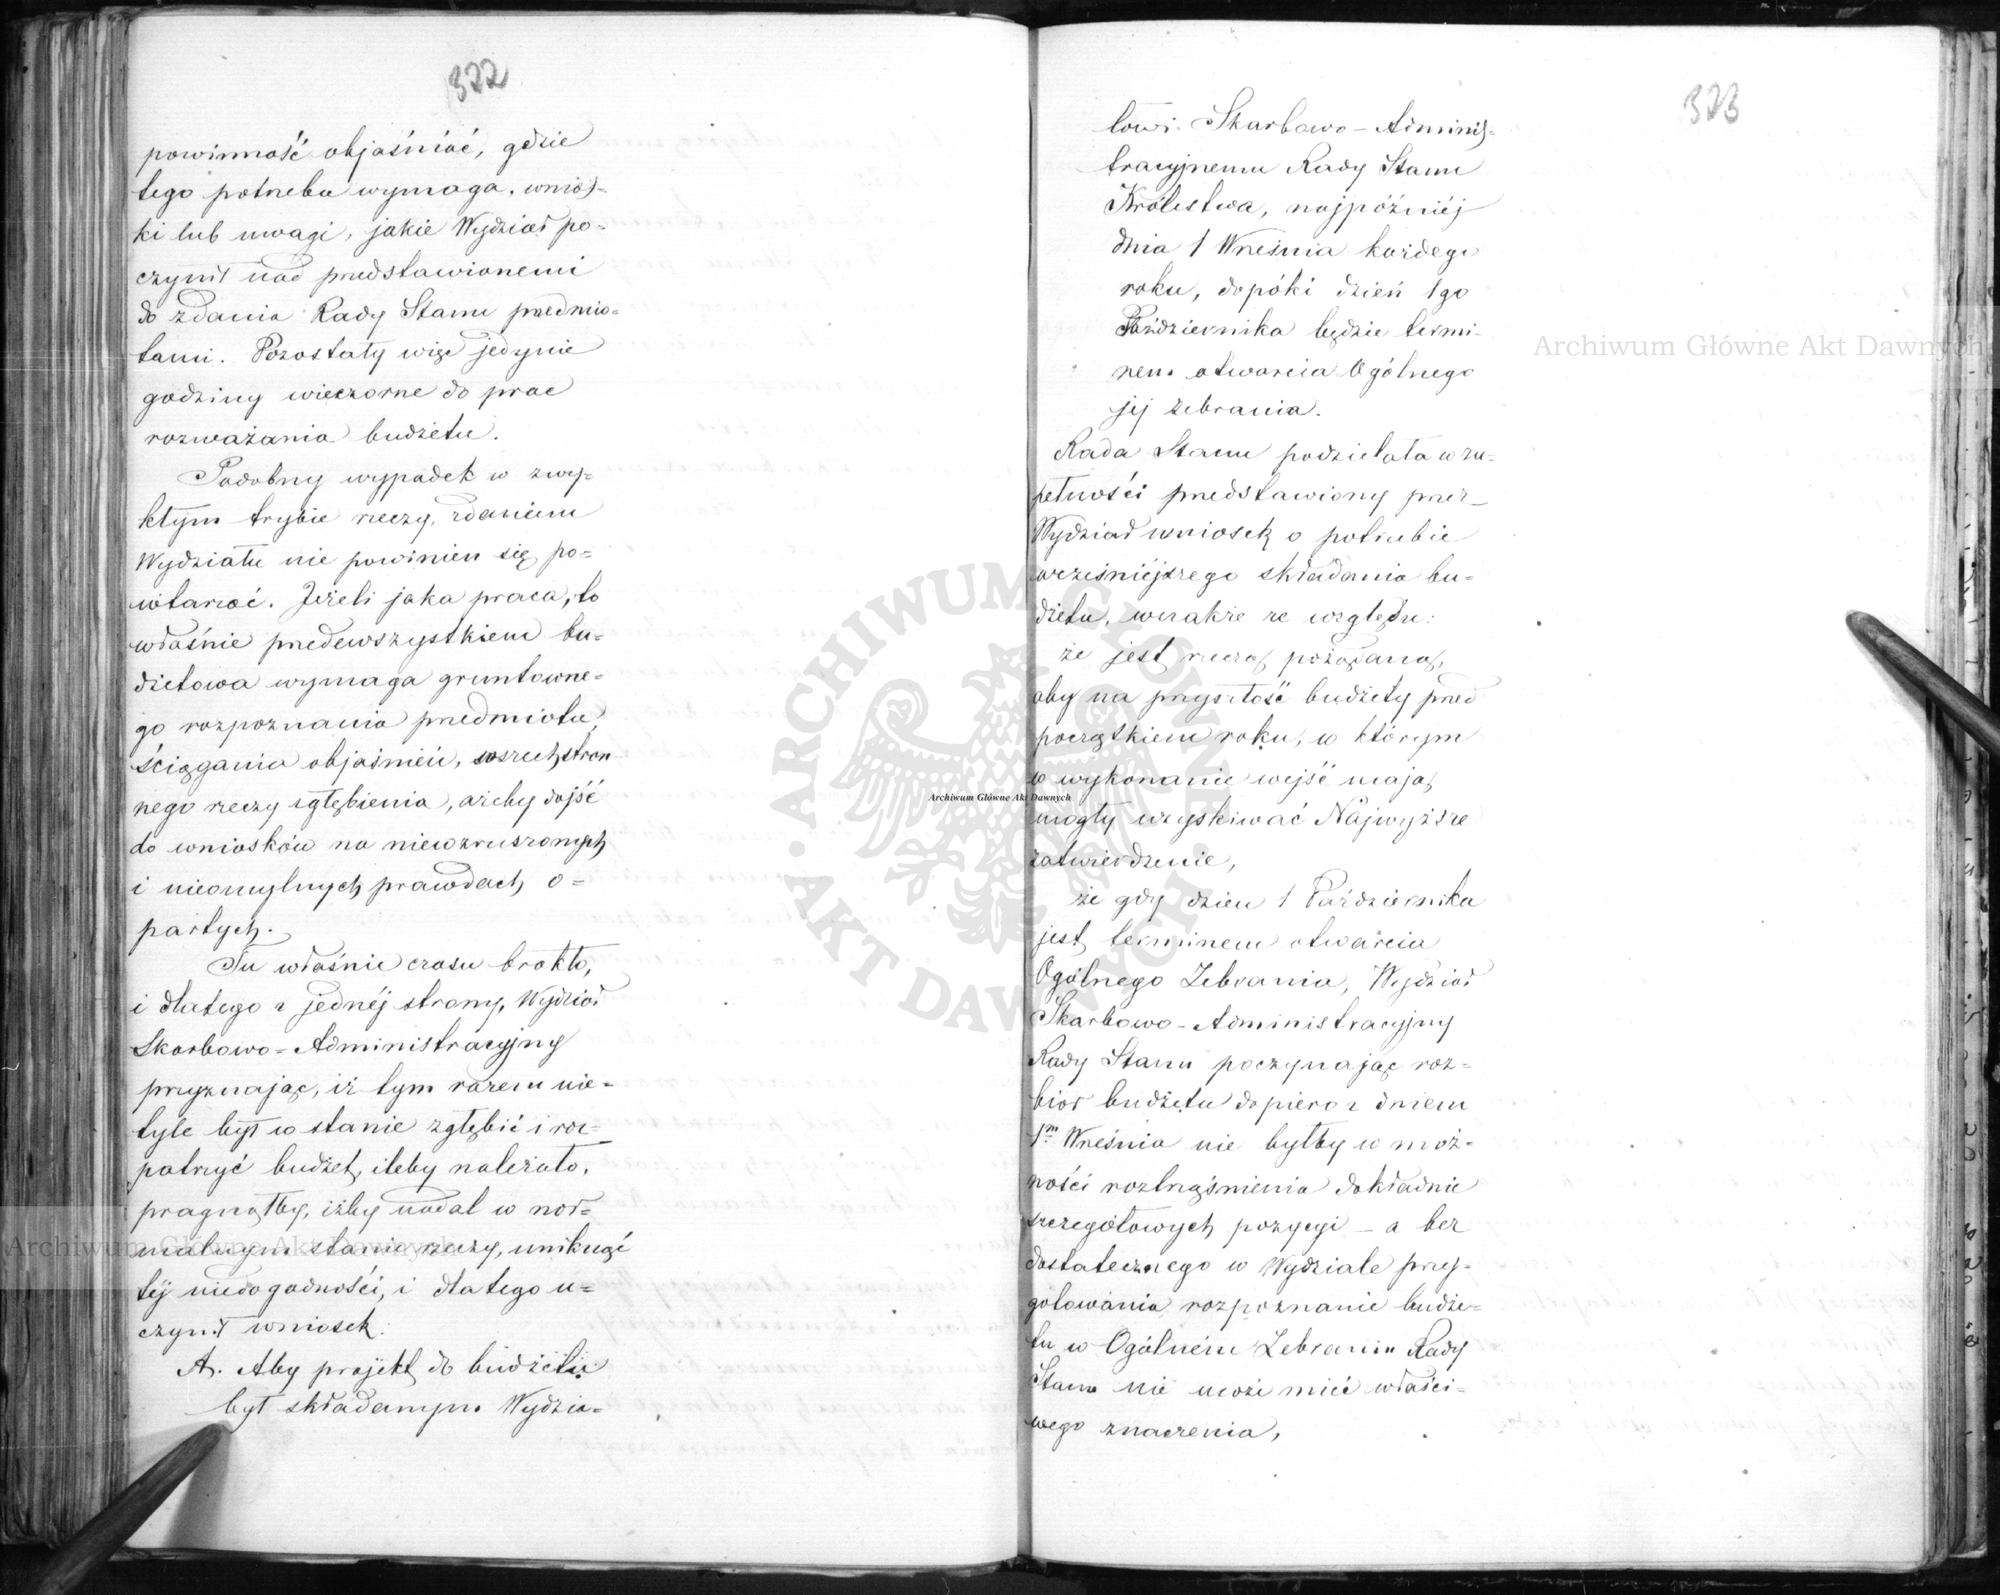 322
powinność objaśniać, gdzie
tego potrzeba wymaga, wnios-
ki lub uwagi, jakie Wydział po-
czynił nad przedstawionemi
do zdania Rady Stanu przedmio-
tami. Pozostały więc jedynie
godziny wieczorne do prac
rozważania budżetu.
Podobny wypadek w zwy-
kłym trybie rzeczy, zdaniem
Wydziału nie powinien się po-
wtarzać. Jeżeli jaka praca, to
właśnie przedewszystkiem bu-
dżetowa wymaga gruntowne-
go rozpoznania przedmiotu,
ściągania objaśnień, wszechstron-
nego rzeczy zgłębienia, ażeby dojść
do wniosków na niewzruszonych
i nieomylnych prawdach o-
partych.
Tu właśnie czasu brakło,
i dlatego z jednéj strony, Wydział
Skarbowo-Administracyjny
przyznając, iż tym razem nie-
tyle był w stanie zgłębić i roz-
patrzyć budżet, ileby należało,
pragnąłby, iżby nadal w nor-
malnym stanie rzeczy, uniknąć
téj niedogodności, i dlatego u-
czynił wniosek:
A. Aby projekt do budżetu
był składanym Wydzia-
323
łowi Skarbowo-Adminis-
tracyjnemu Rady Stanu
Królestwa, najpóźniéj
dnia 1 Września każdego
roku, dopóki dzień 1go
Października będzie termi-
nem otwarcia Ogólnego
jéj Zebrania.
Rada Stanu podzielała w zu-
pełności przedstawiony przez
Wydział wniosek o potrzebie
wcześniéjszego składania bu-
dżetu, wszakże ze względu:
że jest rzeczą pożądaną,
aby na przyszłość budżety przed
początkiem roku, w którym
w wykonanie wejść mają,
mogły uzyskiwać Najwyższe
zatwierdzenie,
że gdy dzień 1 Października
jest terminem otwarcia
Ogólnego Zebrania, Wydział
Skarbowo-Administracyjny
Rady Stanu poczynając roz-
biór budżetu dopiero z dniem
1m Września nie byłby w moż-
ności roztrząśnienia dokładnie
szczegółowych pozycyi – a bez
dostatecznego w Wydziale przy-
gotowania, rozpoznanie budże-
tu w Ogólném Zebraniu Rady
Stanu nie może mieć właści-
wego znaczenia,
Archiwum Główne Akt Dawnych
Archiwum Główne Akt Dawnych
Archiwum Główne Akt Dawnych
ARCHIWUM GŁÓWNE AKT DAWNYCH